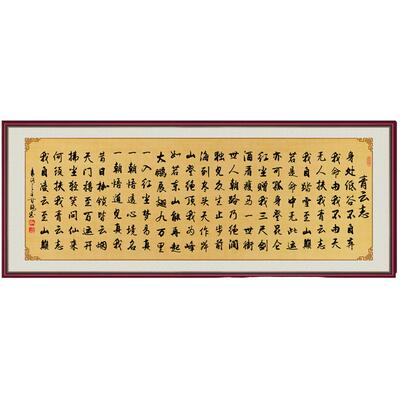 青云志
身处低谷不自弃
我命由我不由天
无人扶我青云志
我自踏雪至山巅
若是命中无此运
亦可孤身登昆仑
红尘赠我三尺剑
酒 马一世
世人朝路乃绝涧
独见众生止步前
海到尽头天作岸
山登绝顶我为峰
如若东山能再起
大鹏展翅九万里
一入红尘梦易真
一朝悟透心境名
一朝悟道见真我
昔日枷锁皆云烟
天门 至百运开
拂尘轻笑问仙来
何须扶我青云志
我自凌云至山巅